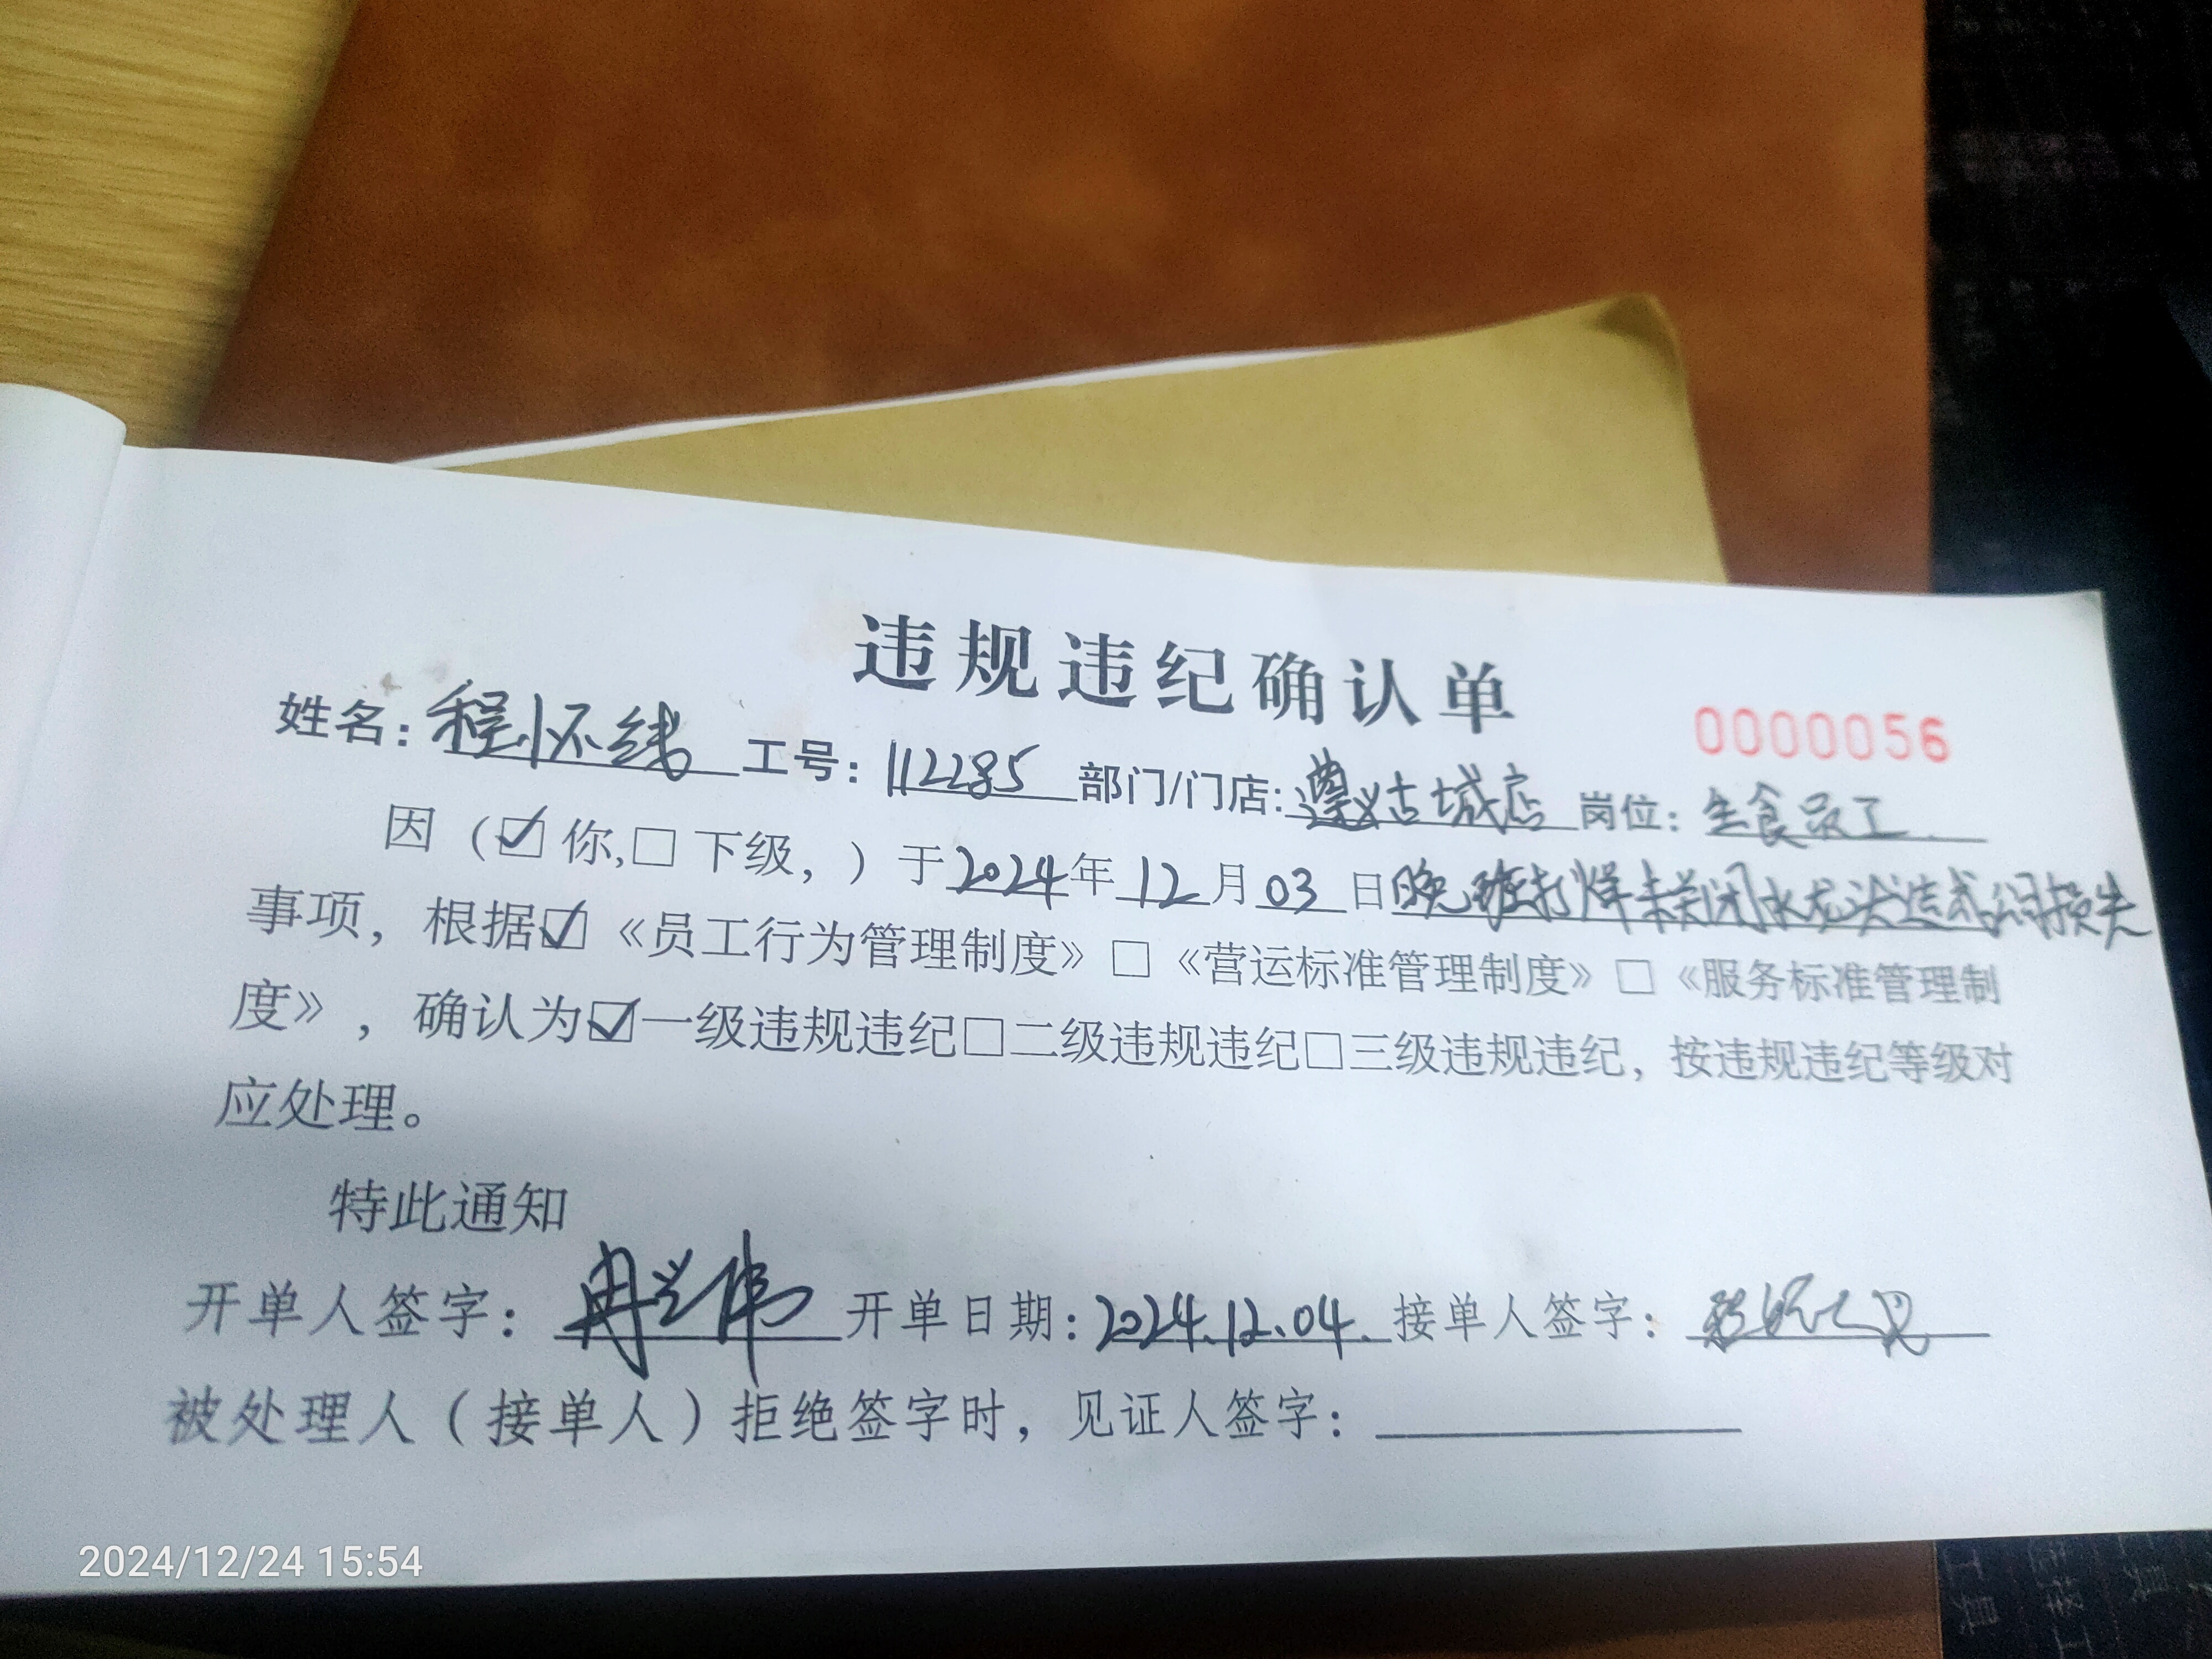 违规违纪确认单
0000056
姓名：程怀纬 工号：112285 部门/门店：遵义古城店 岗位：生食员工
因（☑你,□下级，）于2024年12月03日晚班打烊未关闭水龙头造成公司损失
事项，根据☑《员工行为管理制度》□《营运标准管理制度》□《服务标准管理制
度》，确认为☑一级违规违纪□二级违规违纪□三级违规违纪，按违规违纪等级对
应处理。
特此通知
开单人签字：冉兴伟 开单日期：2024.12.04. 接单人签字：
被处理人（接单人）拒绝签字时，见证人签字：
2024/12/24 15:54